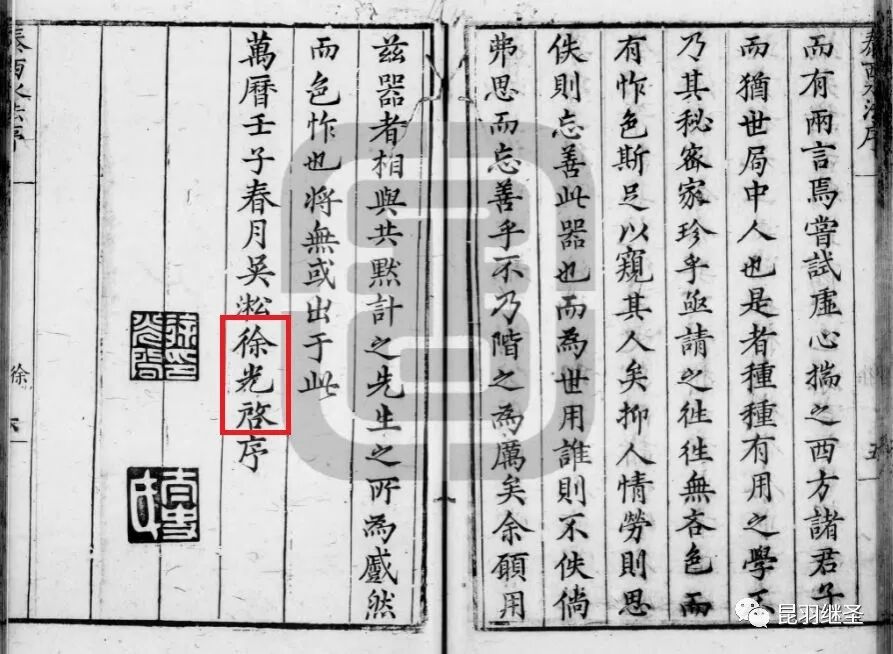 泰西水法序
五
而有兩言焉嘗試虛心揣之西方諸君子
而猶世局中人也是者種種有用之學不
乃其秘密家珍乎亟請之徃徃無吝色而
有怍色斯足以窺其人矣抑人情勞則思
佚則忘善此器也而為世用誰則不佚倘
弗思而忘善乎不乃階之為厲矣余願用
茲器者相與共默計之先生之所為蹙然
而色怍也將無或出于此
萬曆壬子春月吳淞徐光啓序
徐印光啓
太史氏
泰西水法序
徐
六
昆羽继圣